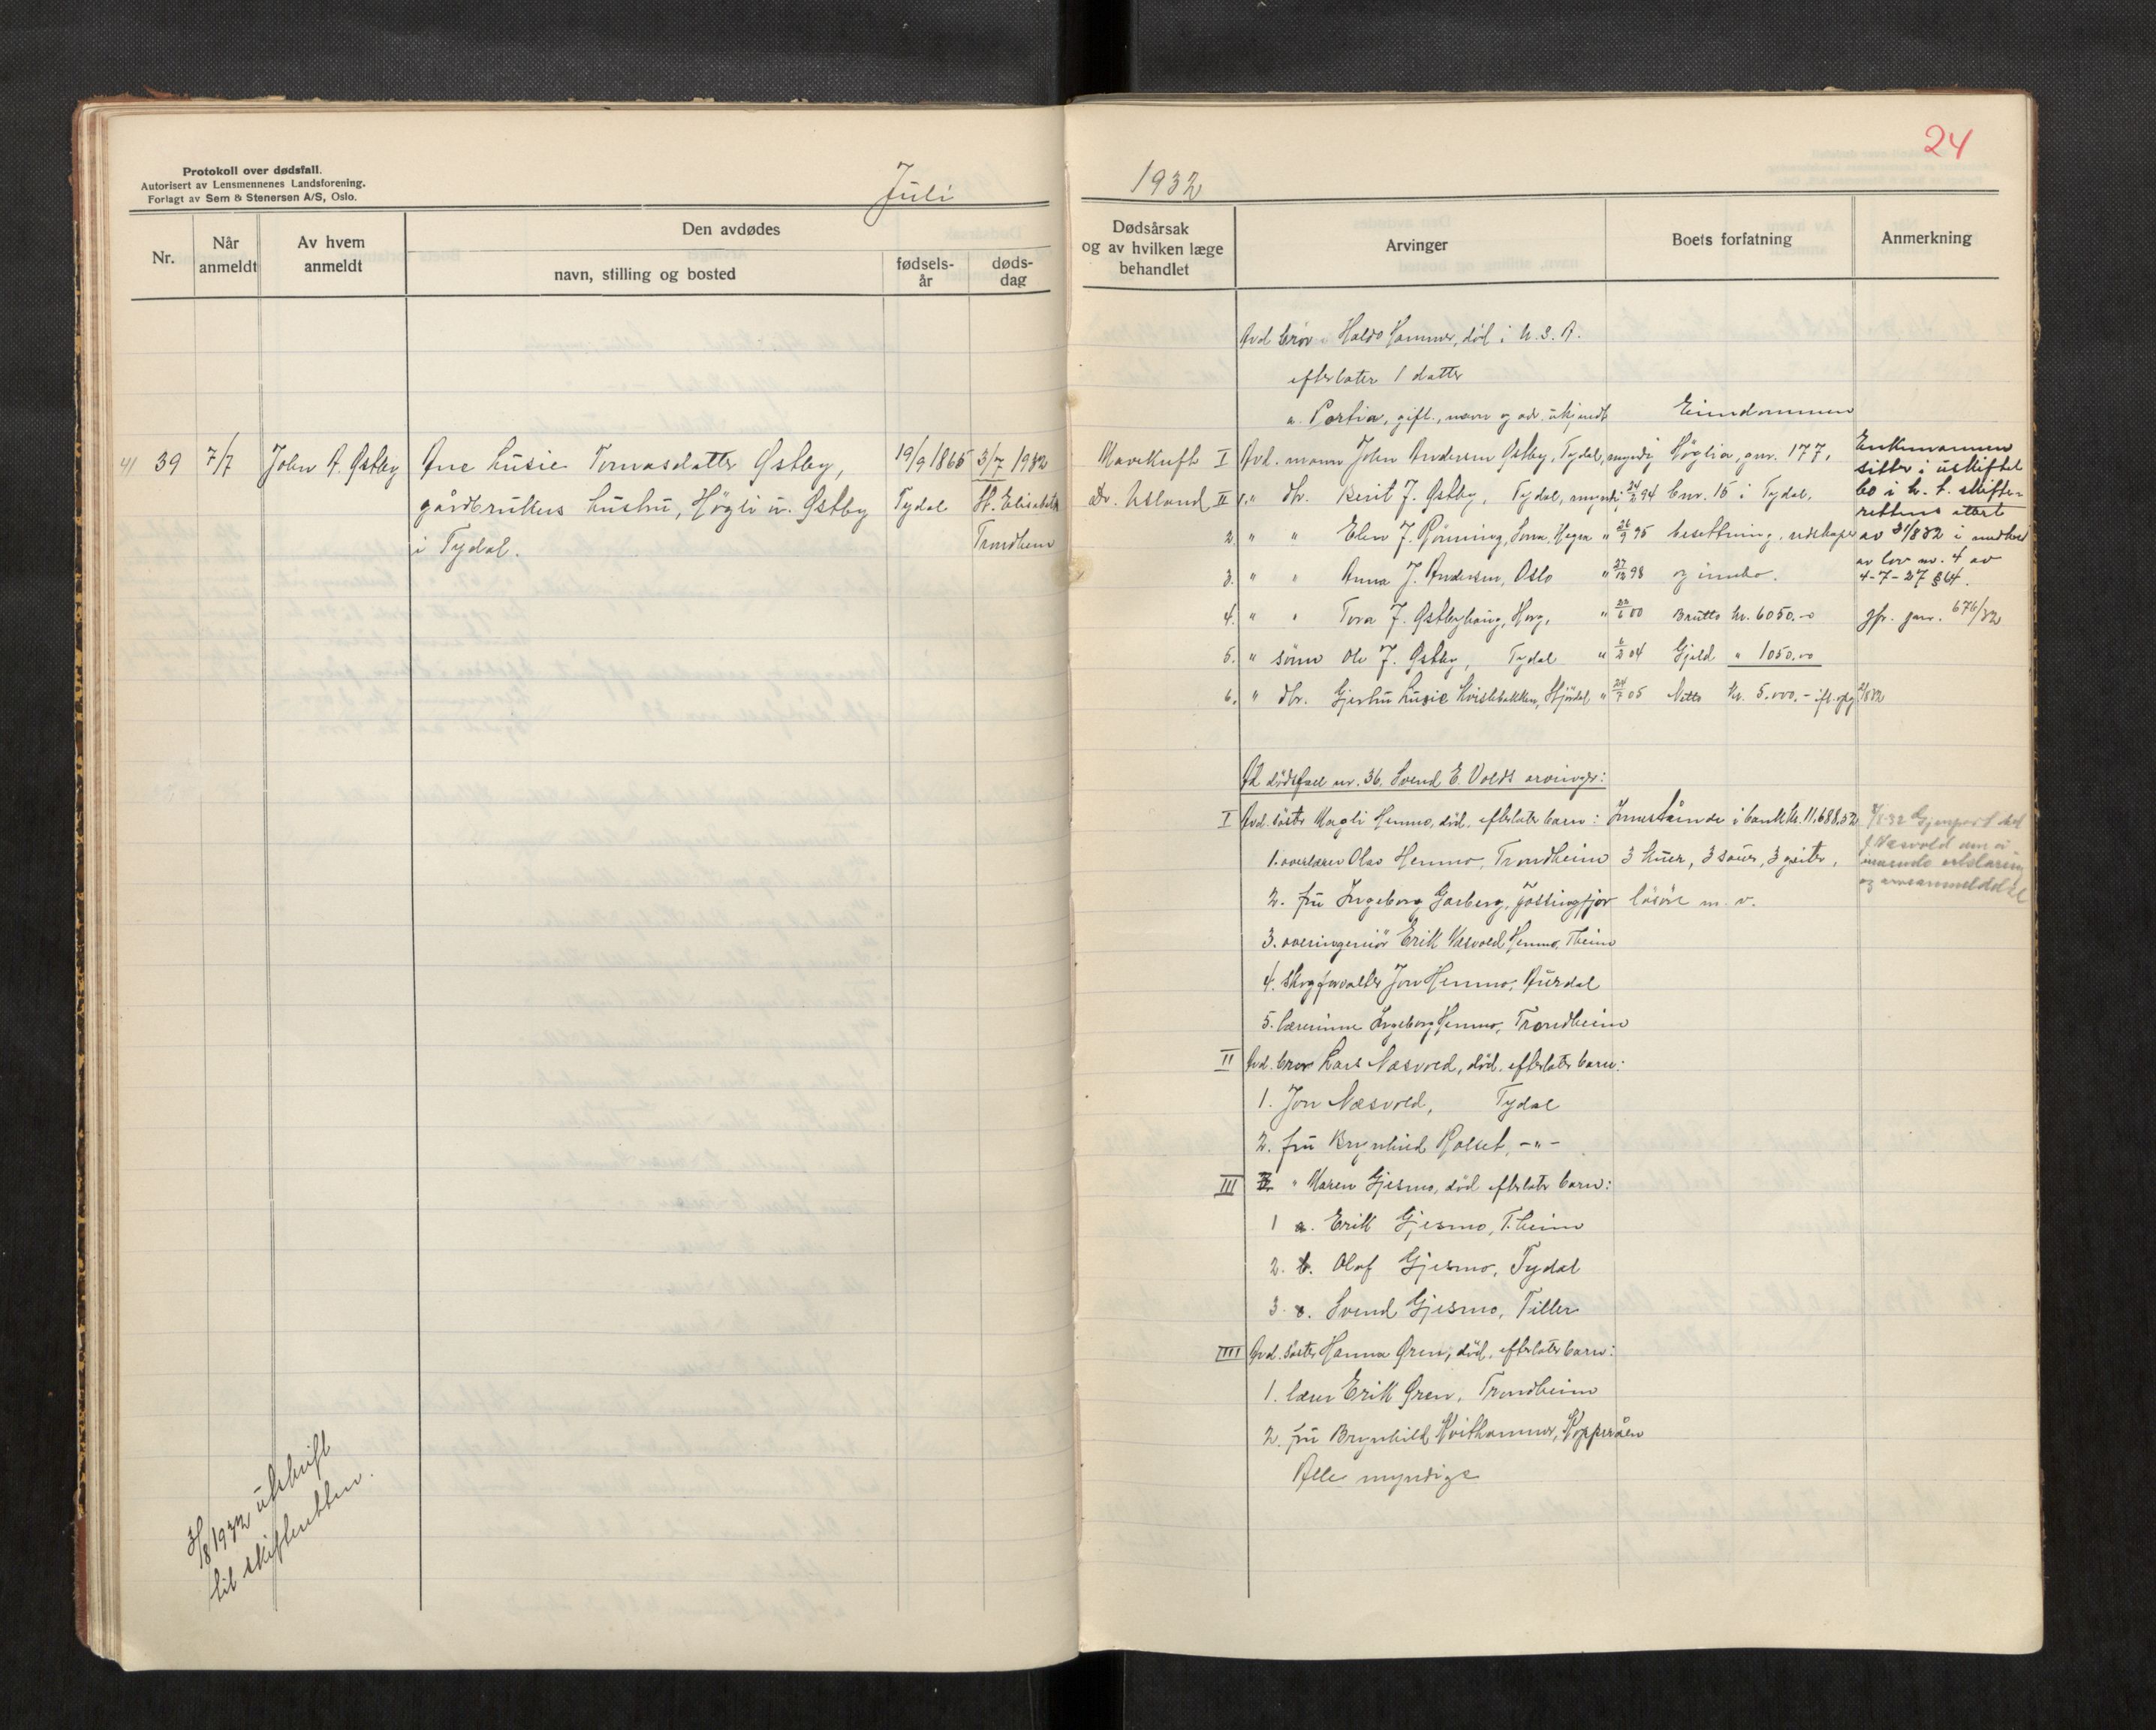 Protokoll over dødsfall.
Autorisert av Lensmennenes Landsforening.
Forlagt av Sem & Stenersen A/S, Oslo.
Juli
Nr.
Når anmeldt
Av hvem anmeldt
Den avdødes
navn, stilling og bosted
fødsels-
år
døds-
dag
41 39 7/7 John A. Østby Ane Lusie Tomasdatter Østby, 19/9 1865 3/7 1932
gårdbrukers hustru, Høgli u. Østby Tydal St. Elisabeth
i Tydal. Trondheim
3/8 1932 utskrift
til skifteretten.
1932
24
Dødsårsak
og av hvilken læge
behandlet
Arvinger
Boets forfatning
Anmerkning
Avd. bror Haldo Hammer, død i U.S.A.
efterlater 1 datter
a. Portia, gift, navn og adr. ukjendt
Eiendommen
Mavekreft I Avd. mann John Andersen Østby, Tydal, myndig Høglia, gnr. 177,
Dr. Usland II 1. " dtr. Berit J. Østby, Tydal, myndig 24/2 94 bnr. 15 i Tydal,
2. " " Elen J. Rønning, Hegra " 26/9 95 besetning, redskaper
3. " " Anna J. Andersen, Oslo " 27/12 98 og innbo.
4. " " Tora J. Østbyhaug, Horg, " 22/6 00 Brutto kr. 6050.-
5. " sønn Ole J. Østby, Tydal " 6/2 04 Gjeld " 1050.00
6. " dtr. Gjertru Lusie Kvislebakken, Stjørdal " 24/7 05 Netto kr. 5.000.- ifl. opg. 2/8 32
Enkemannen
sitter i uskiftet
bo i h. t. skifte-
rettens attest
av 31/8 32 i medhold
av lov nr. 4 av
4-7-27 § 64.
jfr. jnr. 676/32
Ad dødsfall nr. 36. Svend E. Volds arvinger:
I Avd. søster Magli Hemmo, død, efterlater barn: Innestående i bank kr. 11.688.52
1. overlærer Olav Hemmo, Trondheim 3 kuer, 3 sauer, 3 gjeiter,
2. fru Ingeborg Garberg, Jøssingfjor løsøre m. v.
3. overingeniør Erik Næsvold Hemmo, T.heim
4. skogforvalter Jon Hemmo, Aurdal
5. lærerinne Ingeborg Hemmo, Trondheim
II Avd. bror Lars Næsvold, død, efterlater barn:
1. Jon Næsvold, Tydal
2. fru Brynhild Rolset, -"-
III " Maren Gjesmo, død efterlater barn:
1 a. Erik Gjesmo, T.heim
2. b. Olaf Gjesmo, Tydal
3. c. Svend Gjesmo, Tiller
IIII Avd. søster Hanna Øren, død, efterlater barn:
1. lærer Erik Øren, Trondheim
2. fru Brynhild Kvithammer, Kopperåen
Alle myndige